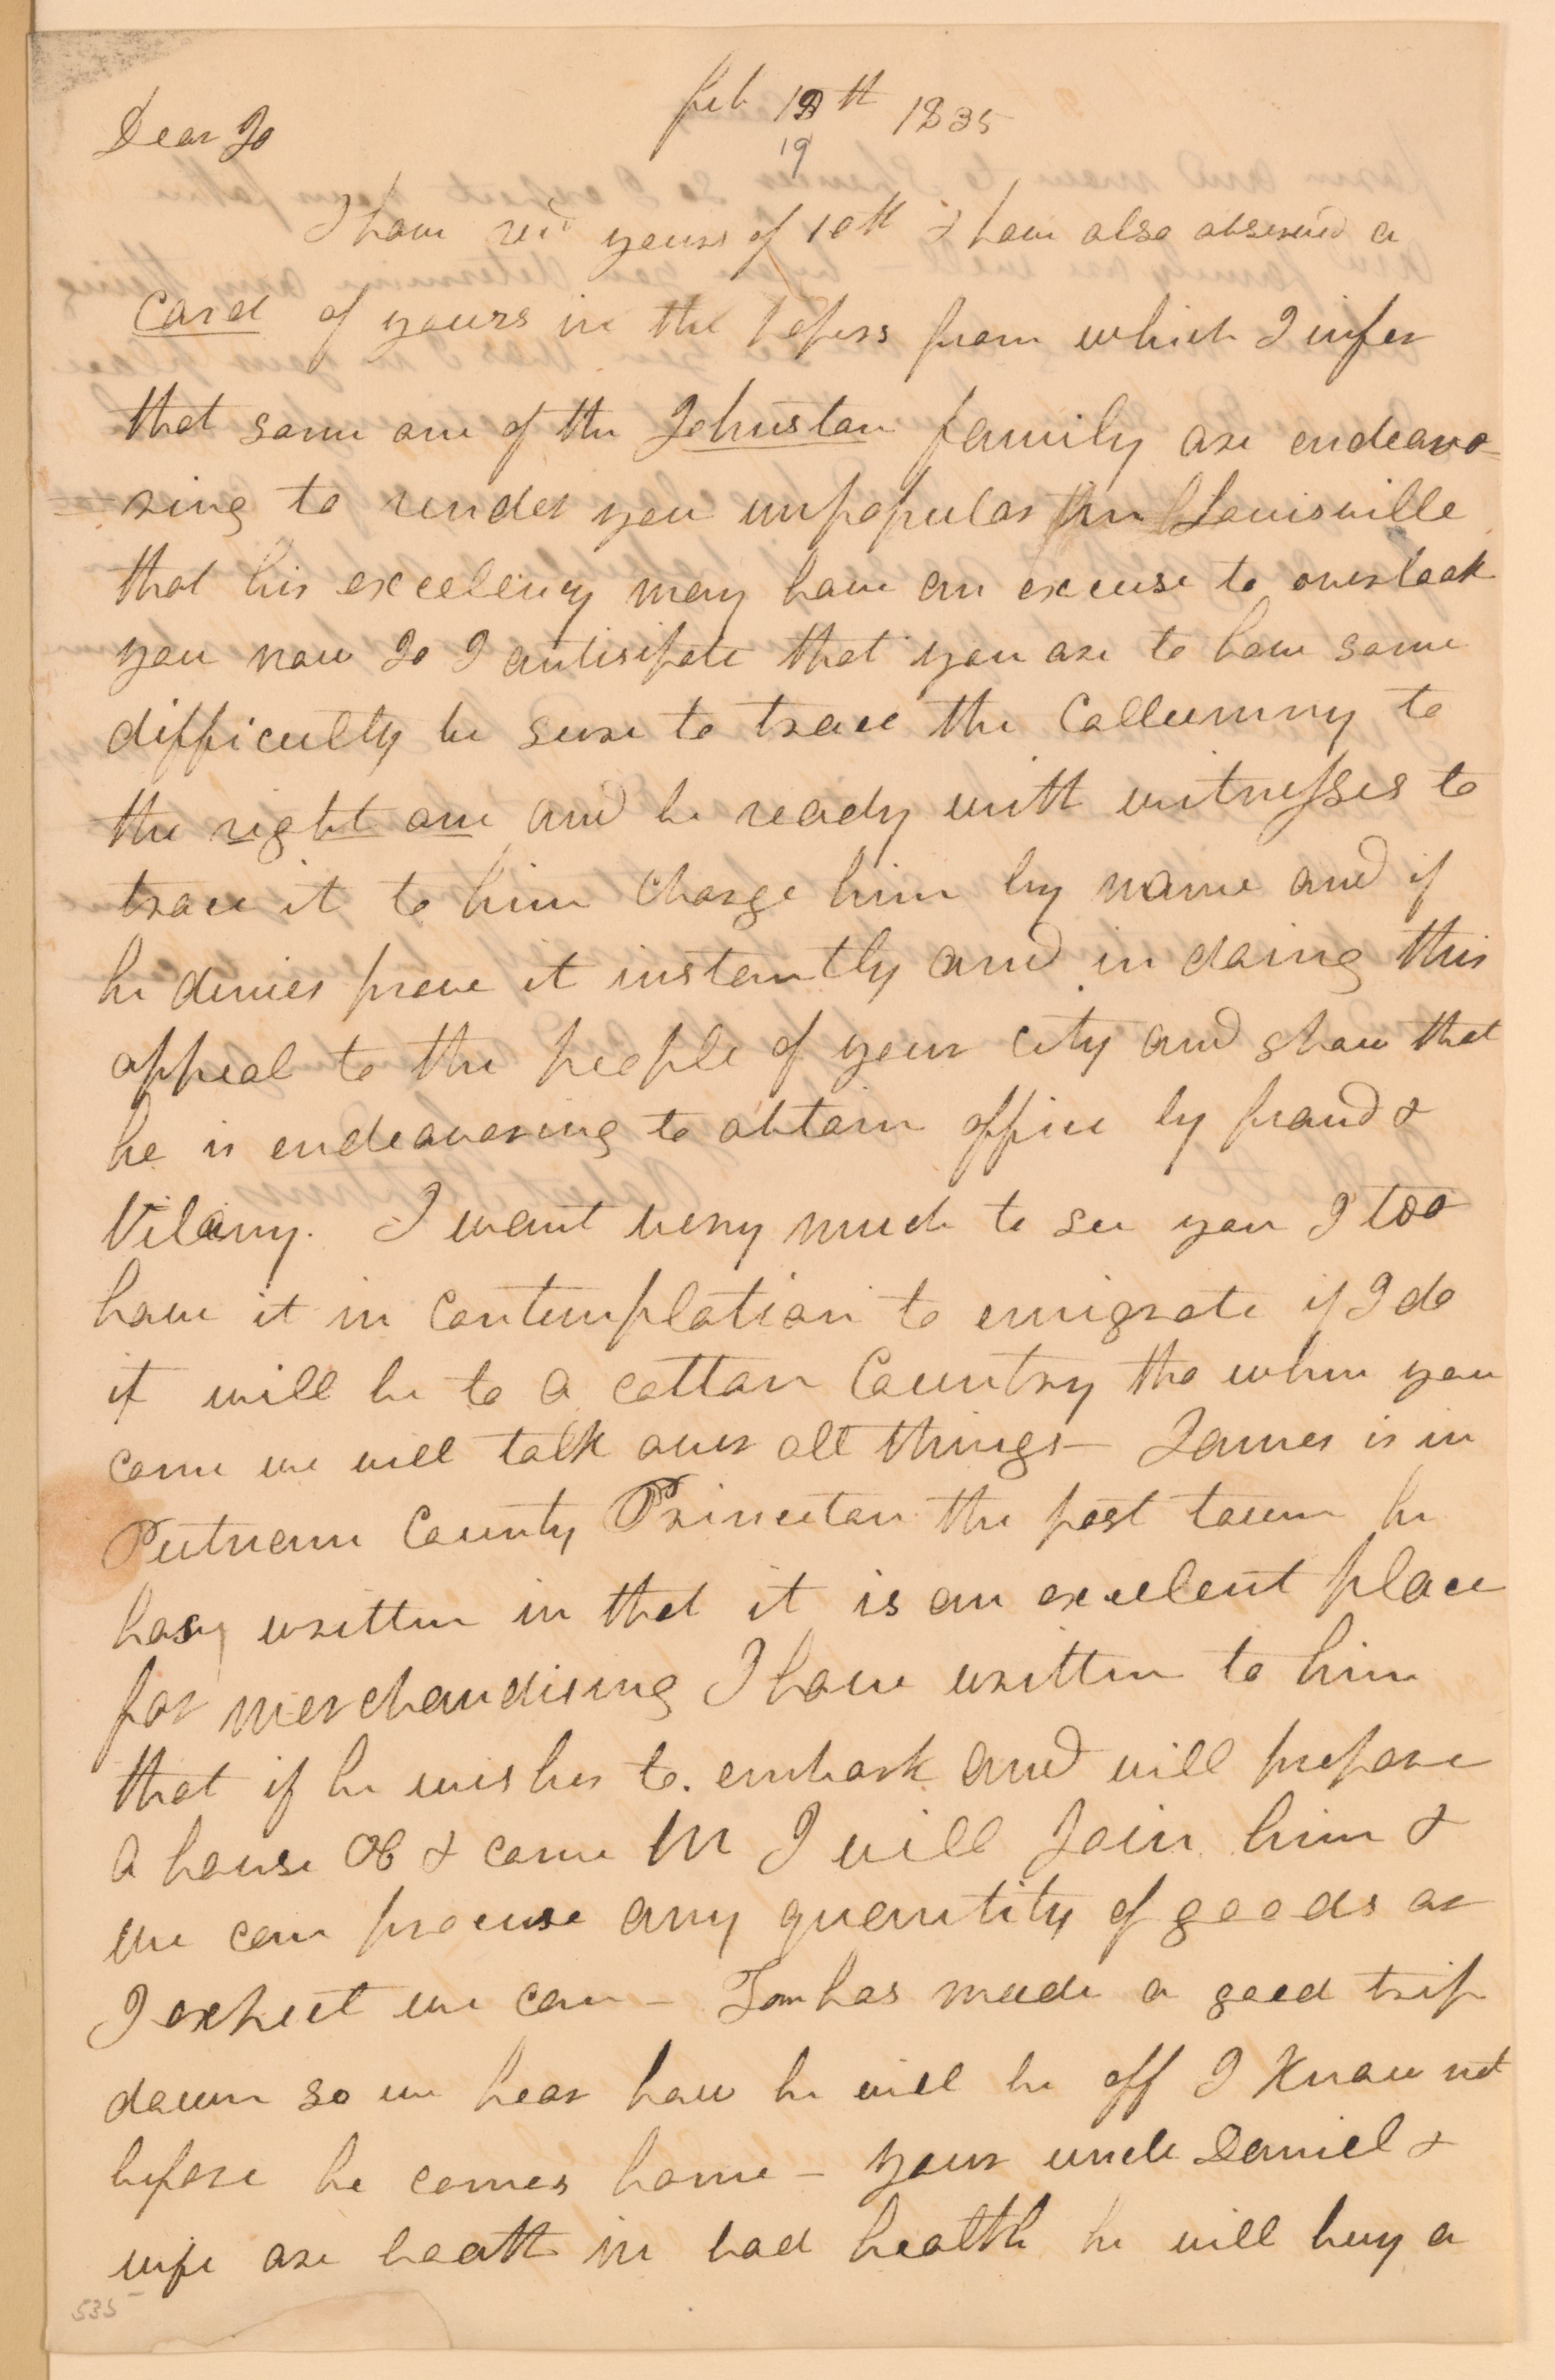 Feb 18th 1835
19
Dear Jo
I have recd yours of 10th & have also observed a
Card of yours in the papers from which I infer
that some one of the Johnston family are endeavo=
=ring to render you unpopular in Louisville
that his excelency may have an excuse to overlook
you now Jo I antisipate that you are to have some
difficulty be sure to trace the Callumny to
the right one and be ready with witnesses to
trace it to him Charge him by name and if
he denies prove it instantly and in doing this
appeal to the people of your City and show that
he is endeavoring to obtain office by fraud &
Vilany. I want very much to see you I too
have it in Contemplation to emigrate if I do
it will be to a cotton Country tho when you
come we will talk over all things — James is in
Putnam County Princeton the post town he
has written in that it is an excelent place
for merchandising I have written to him
that if he wishes to embark and will prepare
a house &c & come in I will Join him &
we can procure any quantity of goods as
I expect we can — Tom has made a good trip
down so we hear how he will be off I Know not
before he comes home — your uncle Daniel &
wife are boath in bad health he will buy a
535